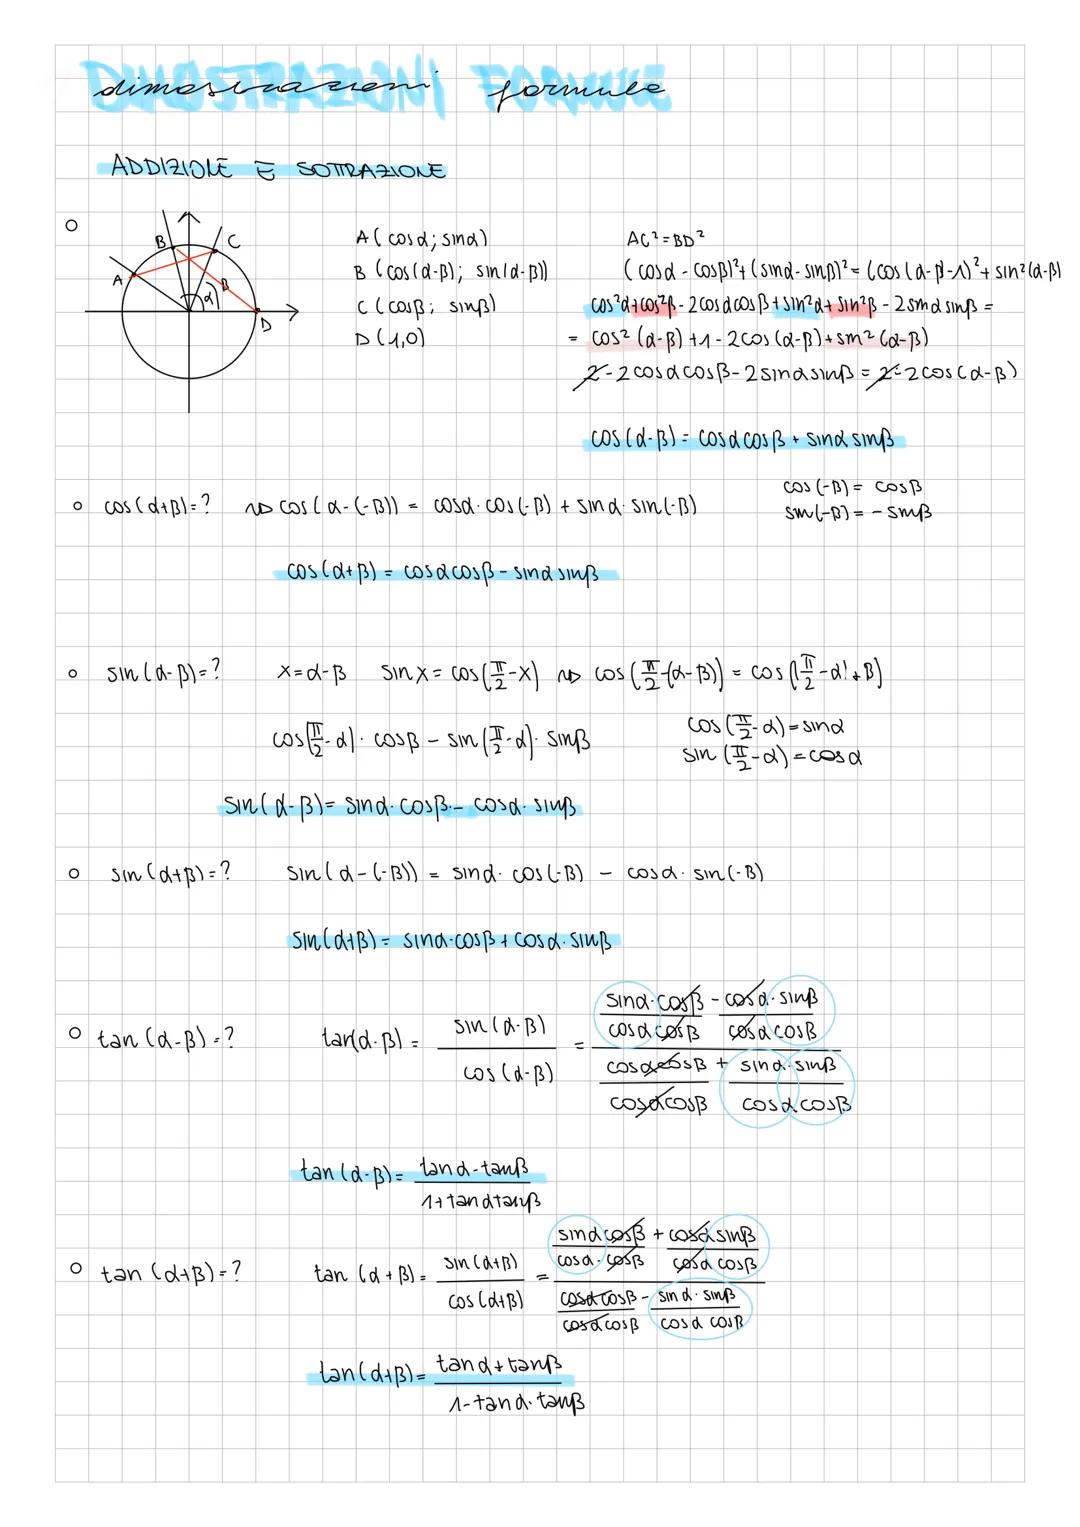 DIMOSTRAZIONI FORMULE
dimostrazioni formule
ADDIZIONE E SOTTRAZIONE
A B C D α β
A(cosα; sinα)
B(cos(α-β); sin(α-β))
C(cosβ; sinβ)
D(1,0)
AC²=BD²
(cosα - cosβ)²+(sinα-sinβ)²=(cos(α-β)-1)²+sin²(α-β)
cos²α+cos²β-2cosαcosβ+sin²α+sin²β-2sinαsinβ=
= cos²(α-β)+1-2cos(α-β)+sin²(α-β)
2-2cosαcosβ-2sinαsinβ=2-2cos(α-β)
cos(α-β)=cosαcosβ+sinαsinβ
cos(α+β)=? ⇝ cos(α-(-β)) = cosα·cos(-β)+sinα·sin(-β)
cos(-β)= cosβ
sin(-β)= -sinβ
cos(α+β)=cosαcosβ-sinαsinβ
sin(α-β)=? x=α-β sinx=cos(π/2-x) ⇝ cos(π/2-(α-β)) = cos((π/2-α)+β)
cos(π/2-α)·cosβ-sin(π/2-α)·sinβ
cos(π/2-α)=sinα
sin(π/2-α)=cosα
sin(α-β)=sinα·cosβ-cosα·sinβ
sin(α+β)=? sin(α-(-β)) = sinα·cos(-β) - cosα·sin(-β)
sin(α+β)=sinα·cosβ+cosα·sinβ
sinα·cosβ - cosα·sinβ
cosαcosβ cosαcosβ
tan(α-β)=? tan(α-β) = sin(α-β) =
cos(α-β)
cosαcosβ + sinα·sinβ
cosαcosβ cosαcosβ
tan(α-β)= tanα-tanβ
1+tanαtanβ
sinαcosβ + cosαsinβ
cosα·cosβ cosαcosβ
tan(α+β)=? tan(α+β)= sin(α+β) =
cos(α+β)
cosαcosβ - sinα·sinβ
cosαcosβ cosαcosβ
tan(α+β)= tanα+tanβ
1-tanα·tanβ